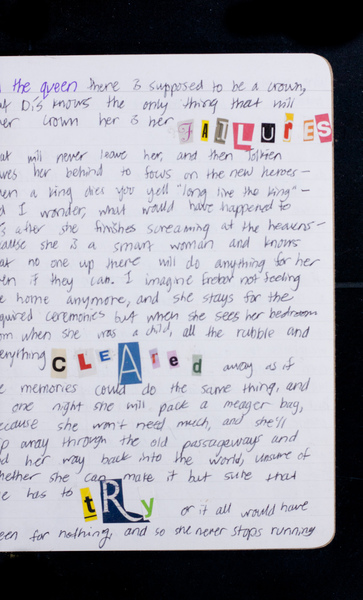 the queen there is supposed to be a crown,
Dis knows the only thing that will
her crown her is her FAILURES
will never leave her, and then Tolkien
her behind to focus on the new heroes—
a king dies you yell "long live the king"—
I wonder, what would have happened to
after she finishes screaming at the heavens—
she is a smart woman and knows
no one up there will do anything for her
if they can. I imagine Erebor not feeling
home anymore, and she stays for the
ceremonies but when she sees her bedroom
when she was a child, all the rubble and
CLEAred away as if
memories could do the same thing, and
one night she will pack a meager bag,
because she won't need much, and she'll
away through the old passageways and
her way back into the world, unsure of
whether she can make it but sure that
has to tRy or it all would have
been for nothing, and so she never stops running